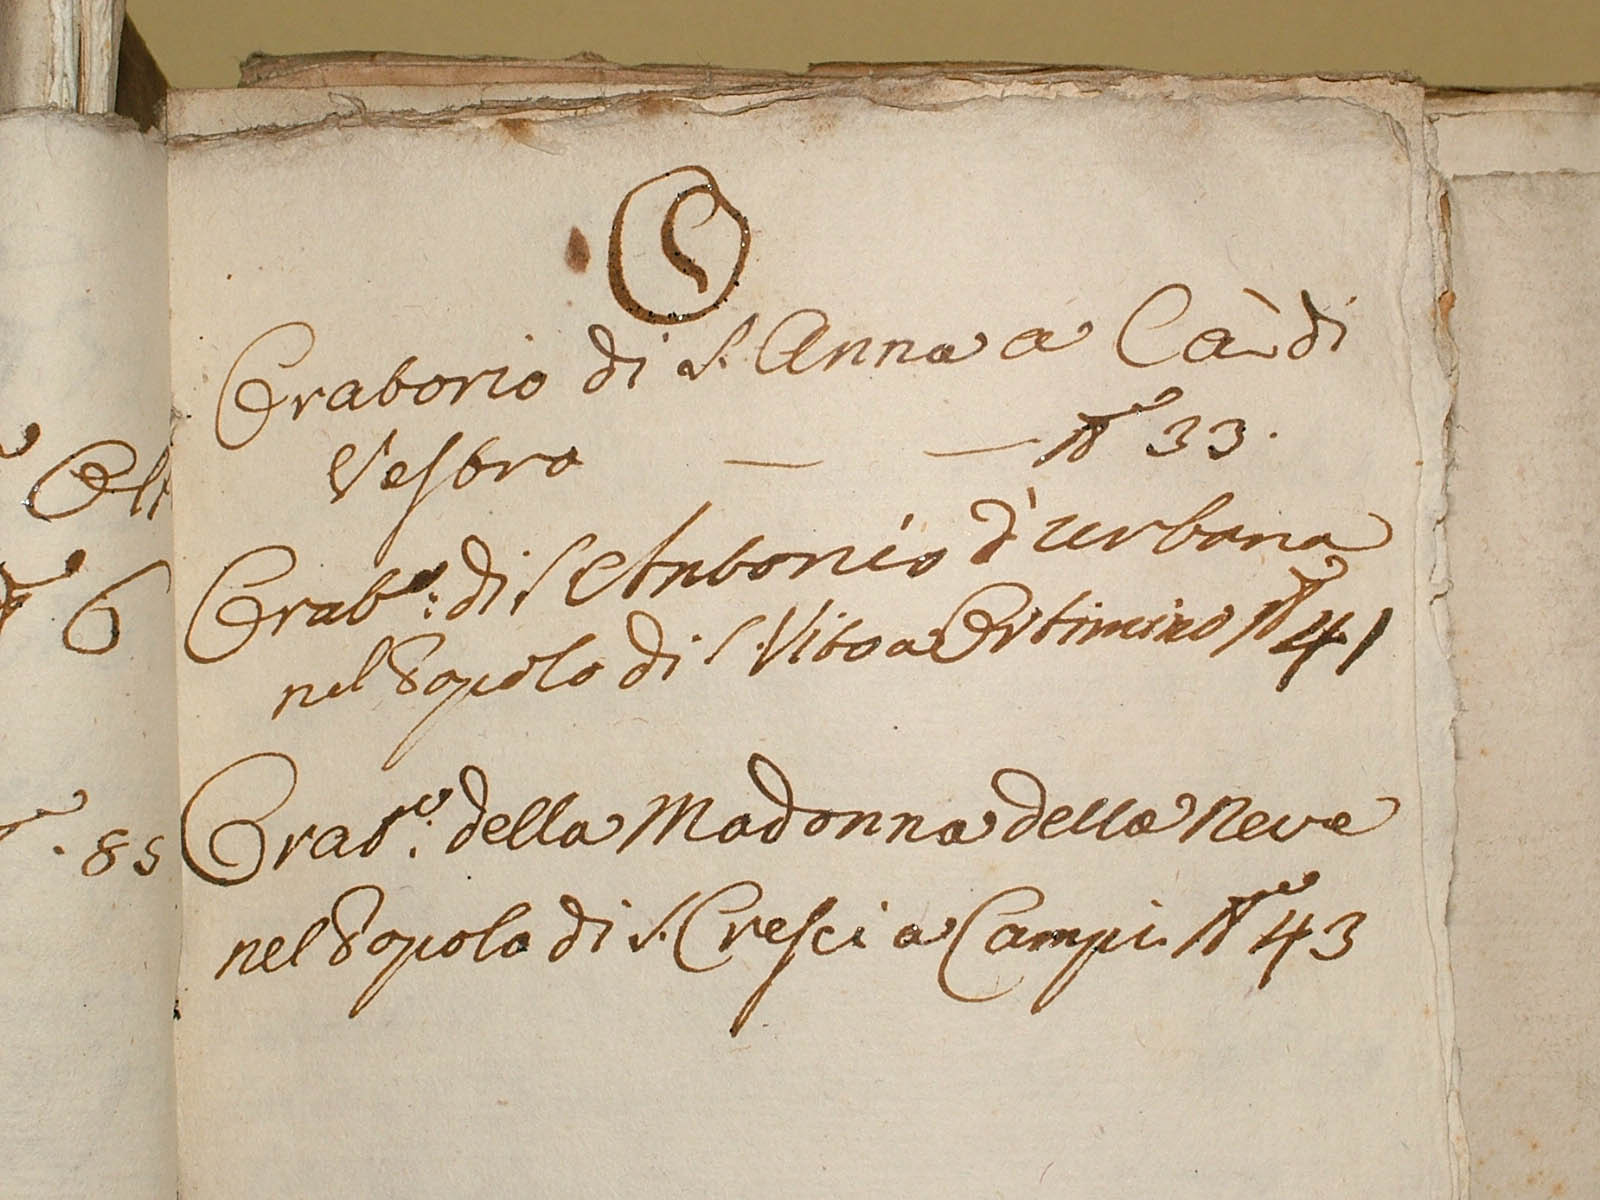 O
Oratorio di S. Anna a Cà di
Vestro — — N.º 33.
Orat.º: di S Antonio d'urbana
nel Popolo di S. Vito a Ortimino N.º 41
Orat.º: della Madonna della Neve
nel Popolo di S. Cresci a Campi. N.º 43
6
85